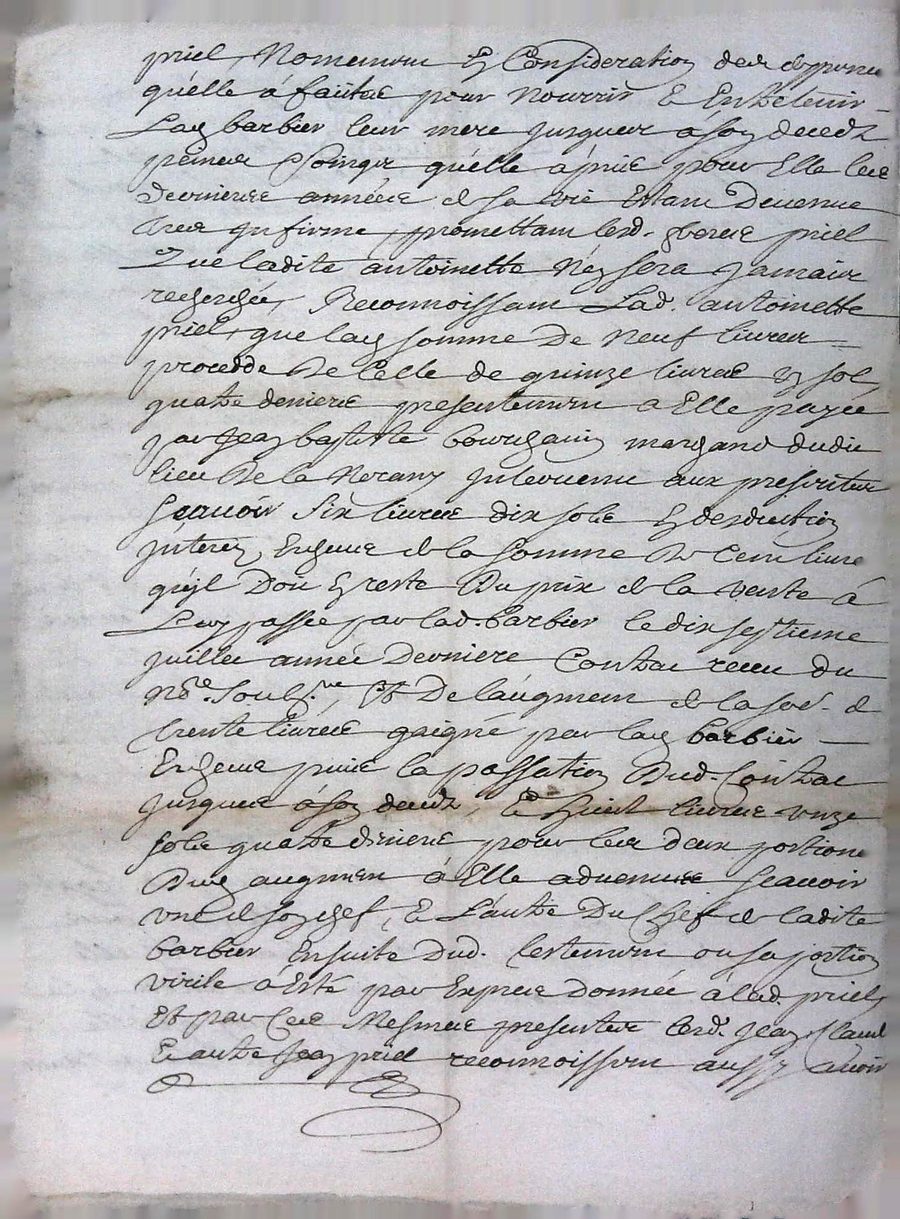 priel, Nomement En Consideration des despences
qu'elle à faittes pour Nourrir Et Entretenir
Lad barbier leur mere jusques à son decedz
peines soings qu'elle à prie pour Elle les
dernieres années de sa vie Estant Devenue
tres infirme, promettant lesd. freres priel
Que ladite antoinette N'en sera Jamais
recherchée, Reconnoissant Lad. antoinette
priel, que lad somme De Neuf livres
procedde De Celle de quinze livres un sol
quatre deniers presentement à Elle payée
par Jean baptiste marchand dudit
lieu De la intervenu aux presentes
scavoir Six livres dix sols En deduction
interets Ensems de la somme De Cent livres
qu'il Doit Et reste Du prix de la vente à
Luy passée par lad. barbier le dix septieme
juillet année Derniere Contrat receu du
No.re Soub.ne, Et De l'augment de la so.e de
trente livres gaigné par lad barbier
Ensems puis la passation Dud. Contrat
jusques à son decedz, Et huict livres unze
sols quatre deniers pour les deux portions
Dud augment à Elle advenues scavoir
une de son chef, Et L'autre Du Chef de ladite
barbier Ensuite Dud. testement ou sa portion
virile à Esté par Exprès donnée a lad. priel,
Et par Ces Mesmes presentes lesd. Jean Claude
Et autre Jean priel reconnoissent aussy avoir